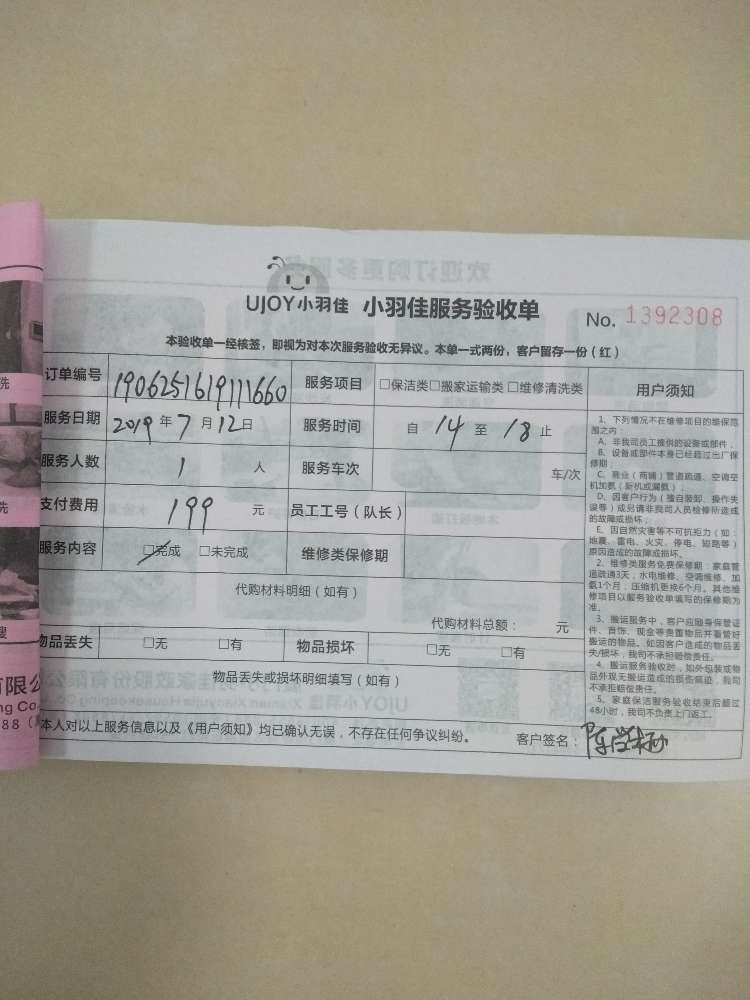 UJOY小羽佳 小羽佳服务验收单 No. 1392308
本验收单一经核签，即视为对本次服务验收无异议。本单一式两份，客户留存一份（红）
订单编号 1906251619111660 服务项目 □保洁类□搬家运输类□维修清洗类 用户须知
服务日期 2019 年 7 月 12 日 服务时间 自 14 至 18 止
服务人数 1 人 服务车次 车/次
支付费用 199 元 员工工号（队长）
服务内容 □完成 □未完成 维修类保修期
代购材料明细（如有）
代购材料总额： 元
物品丢失 □无 □有 物品损坏 □无 □有
物品丢失或损坏明细填写（如有）
本人对以上服务信息以及《用户须知》均已确认无误，不存在任何争议纠纷。 客户签名：
1、下列情况不在维修项目的维保范
围之内：
A、非我司员工提供的设备或部件，
B、设备或部件本身已经超过出厂保
修期；
C、商业（商铺）管道疏通、空调空
机加氨（新机或漏氨）；
D、因客户行为（擅自装卸、操作失
误等）或另请非我司人员检修所造成
的故障或损坏；
E、因自然灾害等不可抗拒力（如：
地震、雷电、火灾、停电、短路等）
原因造成的故障或损坏。
2、维修类服务免费保修期：家庭管
道疏通3天，水电维修、空调维修、加
氨1个月；压缩机更换6个月。其他维
修项目以服务验收单填写的保修期为
准。
3、搬运服务中，客户应随身保管证
件、首饰、现金等贵重物品并看管好
搬运的物品。如因客户造成的物品丢
失/损坏，我司不承担赔偿责任。
4、搬运服务验收时，如外包装或物
品外观无搬运造成的损责痕迹，我司
不承担赔偿责任。
5、家庭保洁服务验收结束后超过
48小时，我司不负责上门返工。
洗
洗
有限公
ng Co.